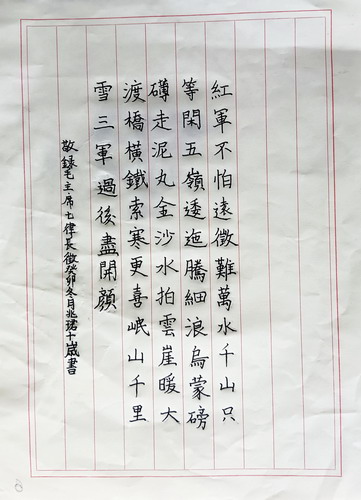 紅軍不怕遠徵難萬水千山只
等閑五嶺逶迤騰細浪烏蒙磅
礴走泥丸金沙水拍雲崖暖大
渡橋橫鐵索寒更喜岷山千里
雪三軍過後盡開顏
敬録毛主席七律長徵癸卯冬月兆珺十歲書